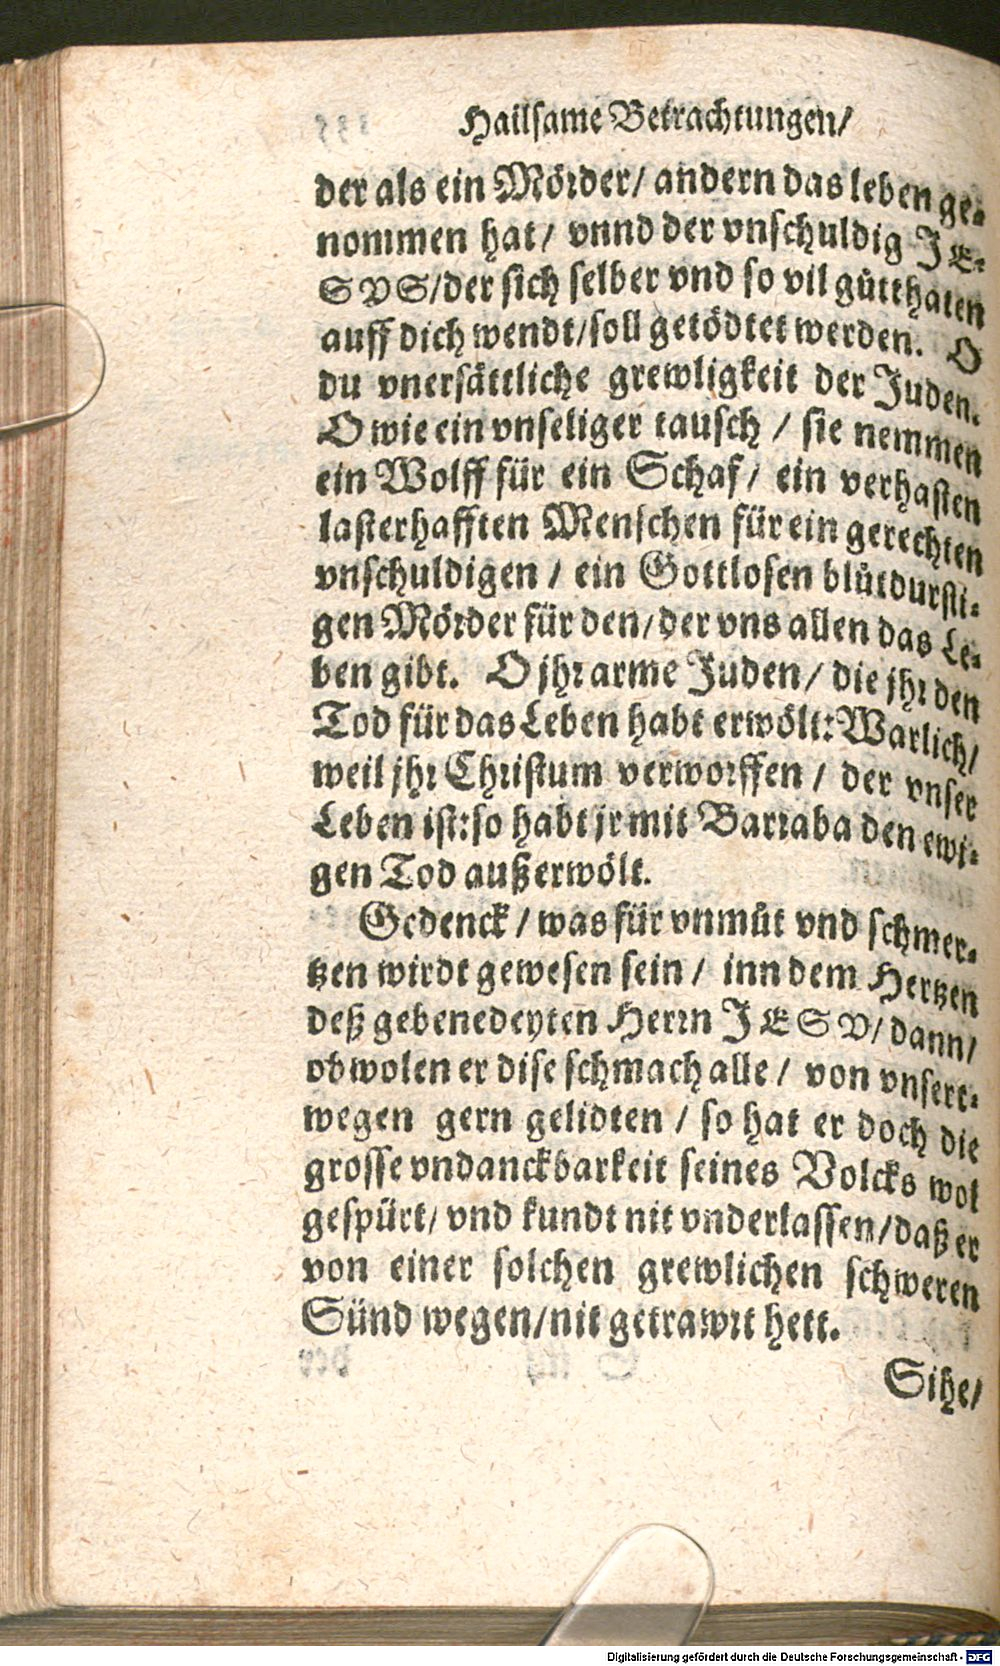 Hailsame Betrachtungen/
der als ein Mörder/ andern das leben ge-
nommen hat/ vnnd der vnschuldig JE-
SVS/der sich selber vnd so vil gůtthaten
auff dich wendt/soll getödtet werden. O
du vnersättliche grewligkeit der Juden.
O wie ein vnseliger tausch / sie nemmen
ein Wolff für ein Schaf/ ein verhasten
lasterhafften Menschen für ein gerechten
vnschuldigen / ein Gottlosen blůtdursti-
gen Mörder für den/der vns allen das Le-
ben gibt. O jhr arme Juden/ die jhr den
Tod für das Leben habt erwölt: Warlich/
weil jhr Christum verworffen / der vnser
Leben ist: so habt jr mit Barraba den ewi-
gen Tod außerwölt.
Gedenck / was für vnmůt vnd schmer-
tzen wirdt gewesen sein / inn dem Hertzen
deß gebenedeyten Herrn JESV/ dann/
ob wolen er dise schmach alle / von vnsert-
wegen gern gelidten / so hat er doch die
grosse vndanckbarkeit seines Volcks wol
gespürt/ vnd kundt nit vnderlassen/daß er
von einer solchen grewlichen schweren
Sünd wegen/nit getrawrt hett.
Sihe/
Digitalisierung gefördert durch die Deutsche Forschungsgemeinschaft - DFG